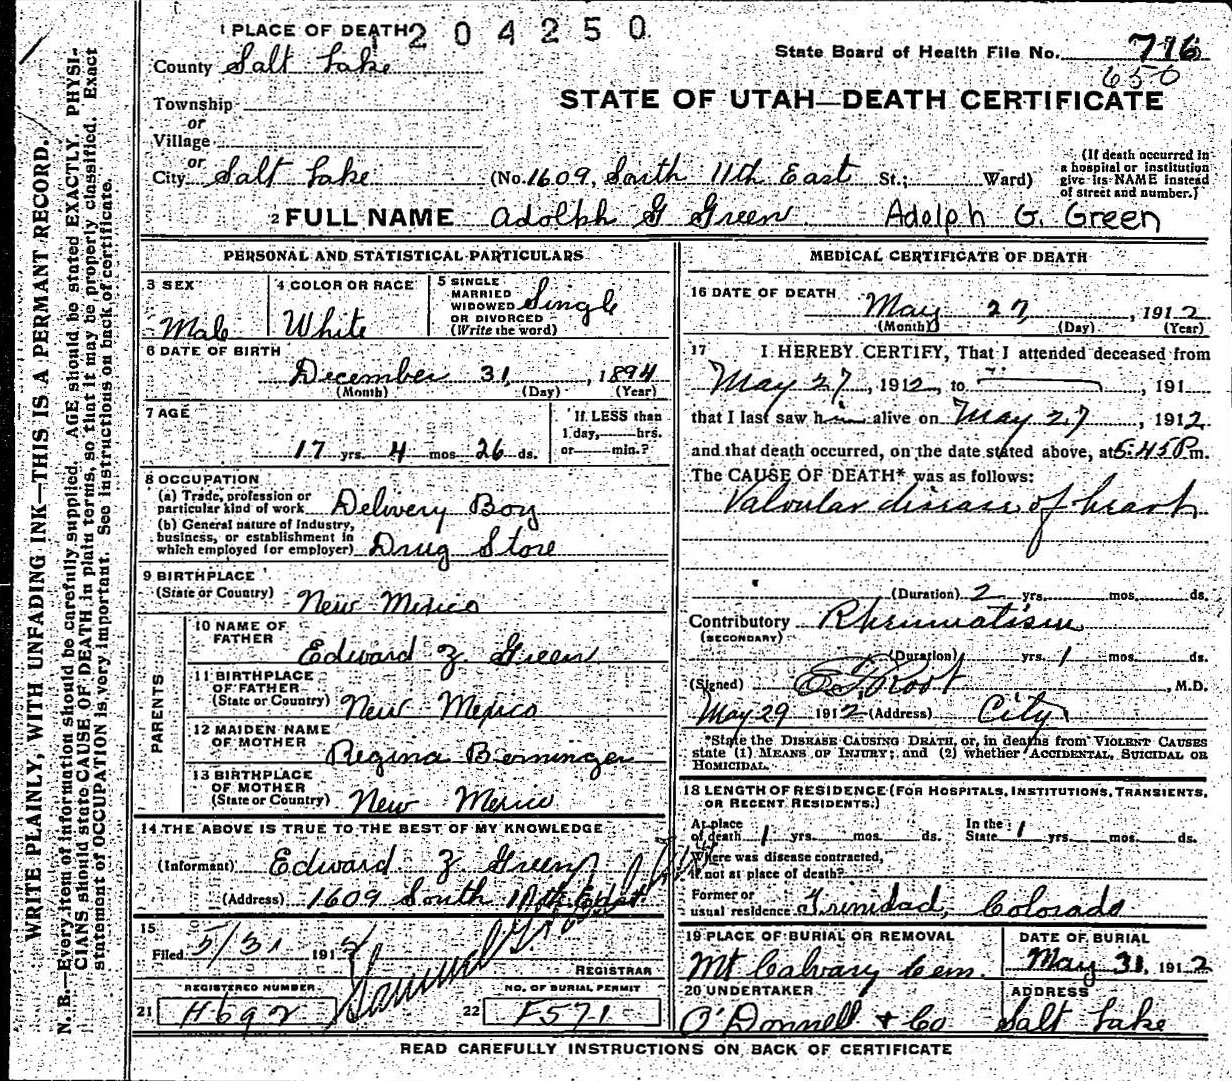 1 PLACE OF DEATH 1204250
State Board of Health File No. 716
650
County Salt Lake
STATE OF UTAH—DEATH CERTIFICATE
Township
or
Village
or
City Salt Lake (No. 1609, South 11th East St.; Ward)
(If death occurred in
a hospital or institution
give its NAME instead
of street and number.)
2 FULL NAME Adolph G Green Adolph G. Green
PERSONAL AND STATISTICAL PARTICULARS
3 SEX
Male
4 COLOR OR RACE
White
5 SINGLE
MARRIED
WIDOWED
OR DIVORCED
(Write the word)
Single
6 DATE OF BIRTH
December 31, 1894
(Month) (Day) (Year)
7 AGE
17 yrs. 4 mos. 26 ds.
If LESS than
1 day, hrs.
or min.?
8 OCCUPATION
(a) Trade, profession or
particular kind of work Delivery Boy
(b) General nature of Industry,
business, or establishment in
which employed (or employer) Drug Store
9 BIRTHPLACE
(State or Country) New Mexico
PARENTS
10 NAME OF
FATHER Edward Z. Green
11 BIRTHPLACE
OF FATHER
(State or Country) New Mexico
12 MAIDEN NAME
OF MOTHER Regina Berninger
13 BIRTHPLACE
OF MOTHER
(State or Country) New Mexico
14 THE ABOVE IS TRUE TO THE BEST OF MY KNOWLEDGE
(Informant) Edward Z Green
(Address) 1609 South 11th East
15
Filed 5/31 1912
REGISTRAR
REGISTERED NUMBER
21 H692
NO. OF BURIAL PERMIT
22 F571
MEDICAL CERTIFICATE OF DEATH
16 DATE OF DEATH
May 27, 1912
(Month) (Day) (Year)
17 I HEREBY CERTIFY, That I attended deceased from
May 27, 1912, to , 191
that I last saw him alive on May 27, 1912
and that death occurred, on the date stated above, at 5:45 P m.
The CAUSE OF DEATH* was as follows:
Valvular disease of heart
(Duration) 2 yrs. mos. ds.
Contributory Rheumatism
(SECONDARY)
(Duration) yrs. 1 mos. ds.
(Signed) Root, M.D.
May 29 1912 (Address) City
*State the DISEASE CAUSING DEATH, or, in deaths from VIOLENT CAUSES
state (1) MEANS OF INJURY; and (2) whether ACCIDENTAL, SUICIDAL OR
HOMICIDAL.
18 LENGTH OF RESIDENCE (FOR HOSPITALS, INSTITUTIONS, TRANSIENTS,
OR RECENT RESIDENTS.)
At place
of death 1 yrs. mos. ds. In the
State 1 yrs. mos. ds.
Where was disease contracted,
if not at place of death?
Former or
usual residence Trinidad, Colorado
19 PLACE OF BURIAL OR REMOVAL
Mt Calvary Cem.
DATE OF BURIAL
May 31, 1912
20 UNDERTAKER
O'Donnell + Co
ADDRESS
Salt Lake
READ CAREFULLY INSTRUCTIONS ON BACK OF CERTIFICATE
WRITE PLAINLY, WITH UNFADING INK—THIS IS A PERMANT RECORD.
N. B.—Every item of information should be carefully supplied. AGE should be stated EXACTLY. PHYSI-
CIANS should state CAUSE OF DEATH in plain terms, so that it may be properly classified. Exact
statement of OCCUPATION is very important. See instructions on back of certificate.